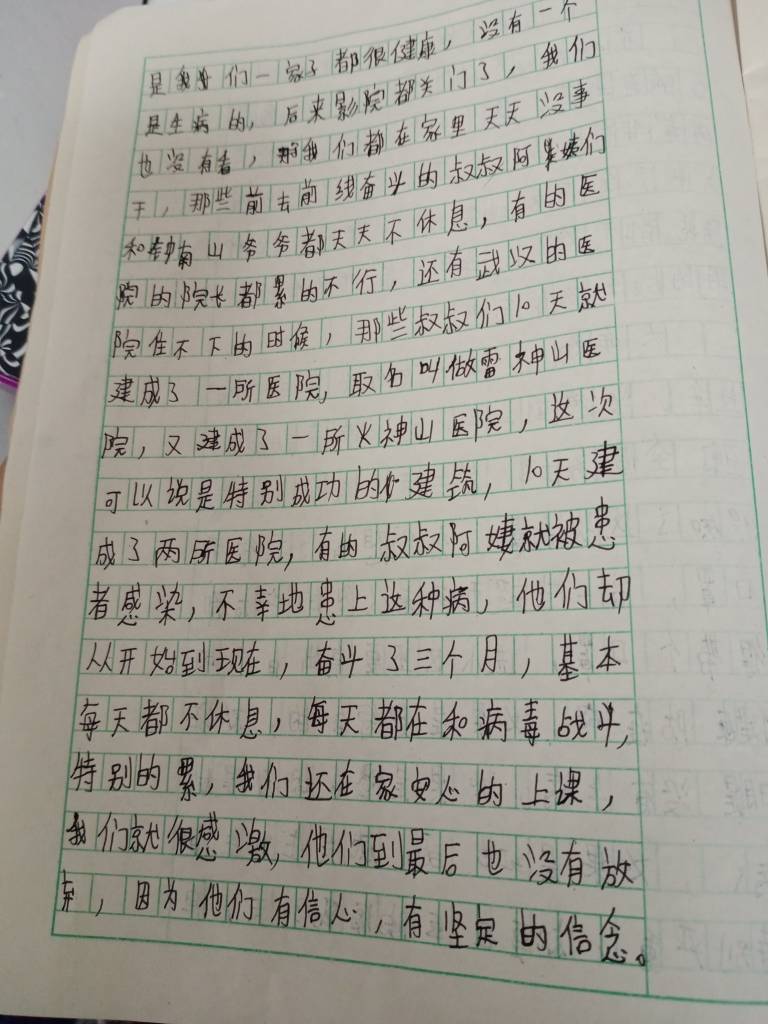 是我们一家子都很健康，没有一个
是生病的，后来影院都关门了，我们
也没有看，我们都在家里天天没事
干，那些前去前线奋斗的叔叔阿姨们
和钟南山爷爷都天天不休息，有的医
院的院长都累的不行，还有武汉的医
院住不下的时候，那些叔叔们10天就
建成了一所医院，取名叫做雷神山医
院，又建成了一所火神山医院，这次
可以说是特别成功的建筑，10天建
成了两所医院，有的叔叔阿姨就被患
者感染，不幸地患上这种病，他们却
从开始到现在，奋斗了三个月，基本
每天都不休息，每天都在和病毒战斗，
特别的累，我们还在家安心的上课，
我们就很感激，他们到最后也没有放
弃，因为他们有信心，有坚定的信念。